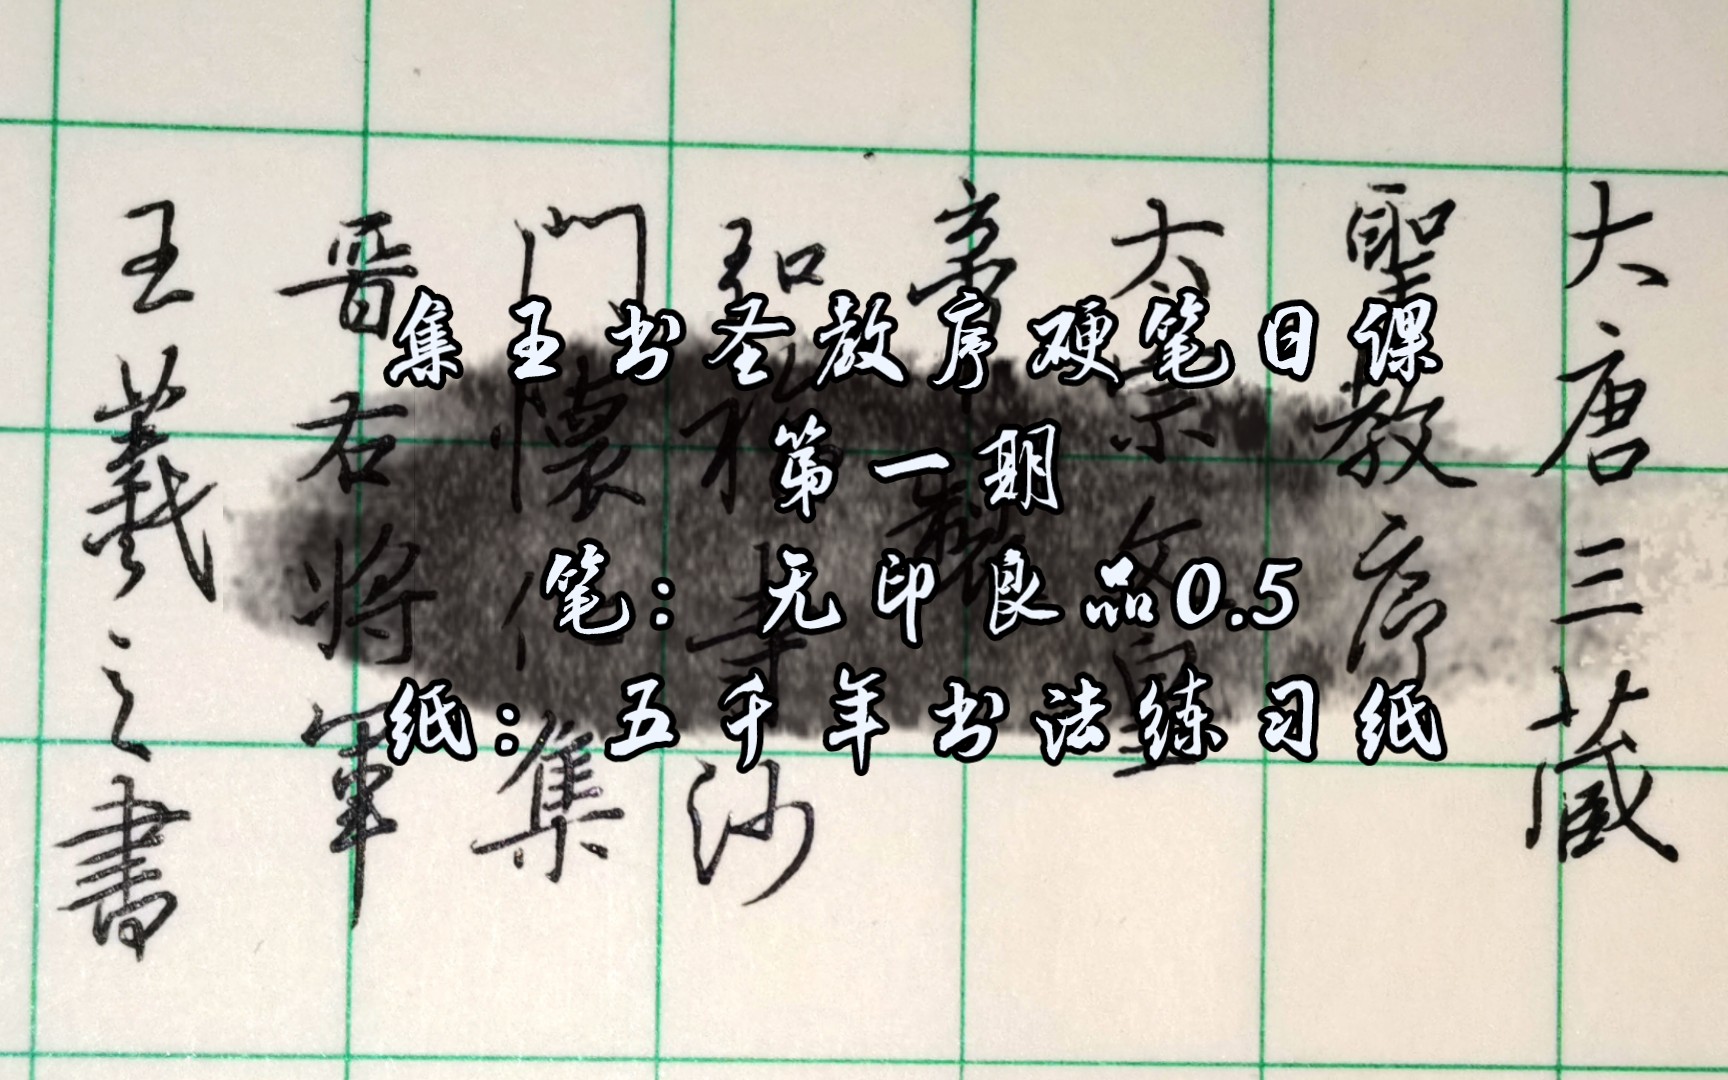 集王书圣教序硬笔日课
第一期
笔：无印良品0.5
纸：五千年书法练习纸
大唐三藏
聖教序
太宗文皇
帝製
弘福寺沙
門懷仁集
晋右将軍
王羲之書